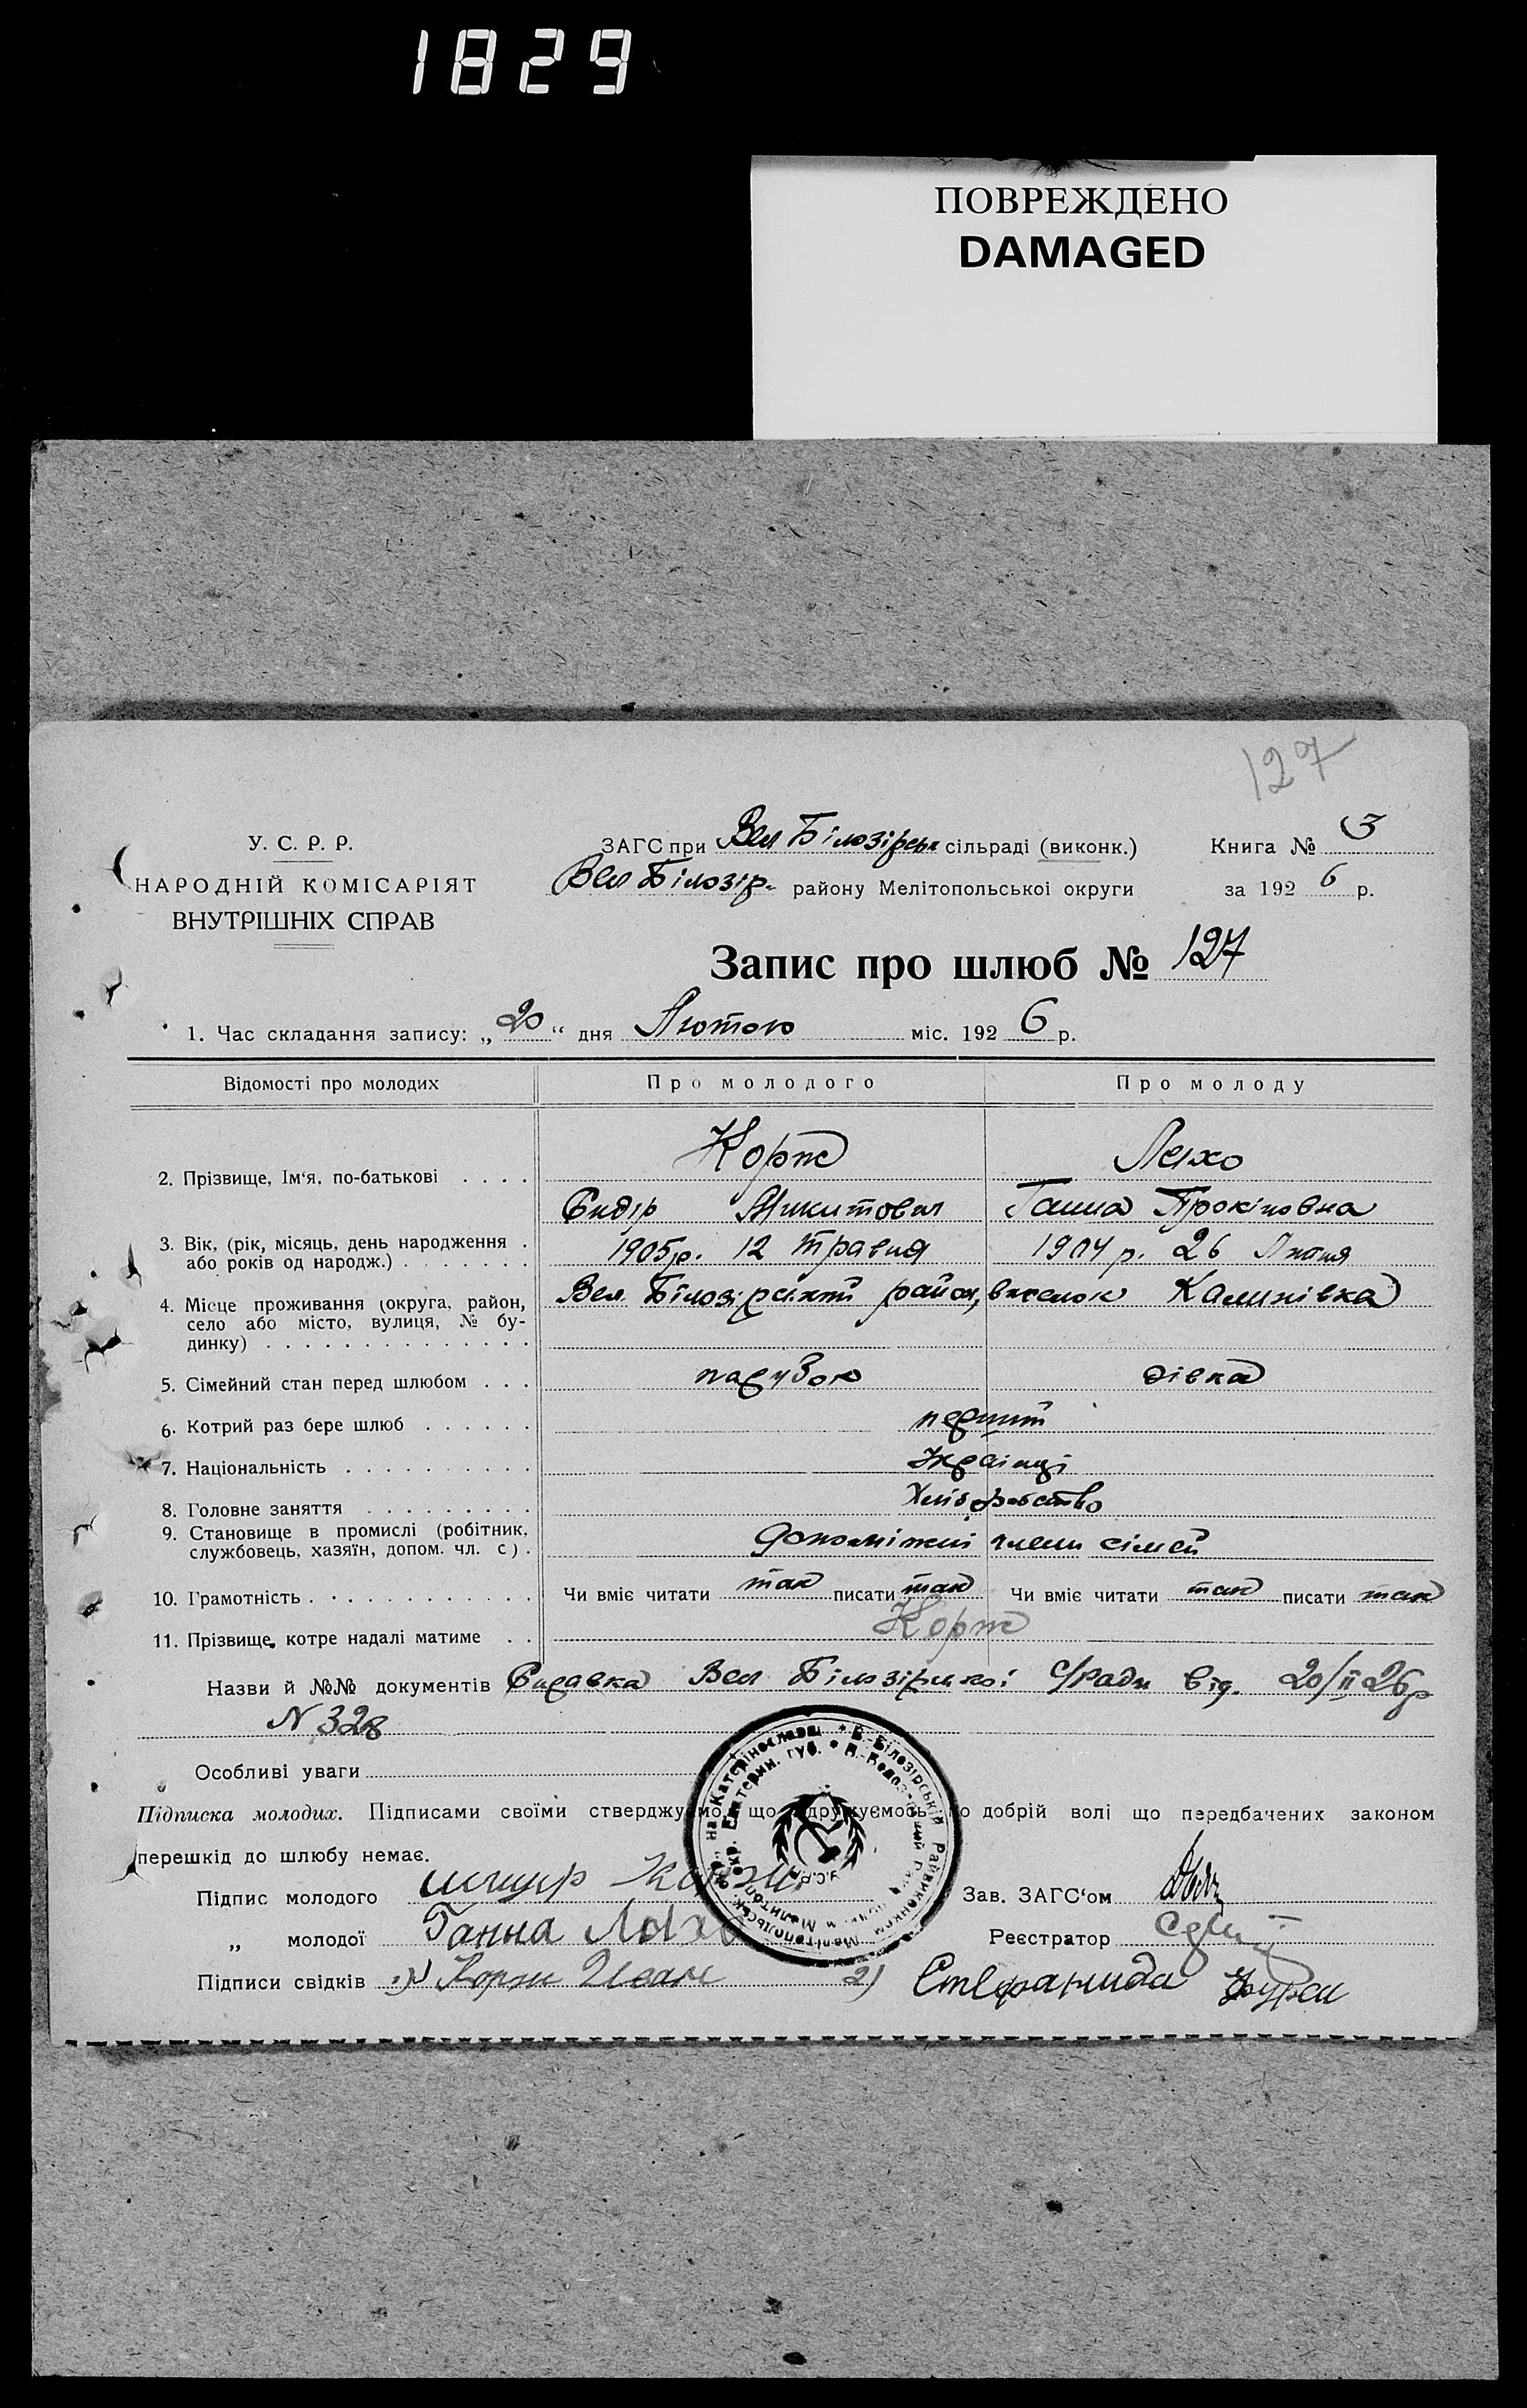 1829
ПОВРЕЖДЕНО
DAMAGED
127
У. С. Р. Р.
НАРОДНІЙ КОМІСАРІЯТ
ВНУТРІШНІХ СПРАВ
ЗАГС при Вел Білозірськ сільраді (виконк.)
Вел Білозір. району Мелітопольської округи
Книга № 3
за 1926 р.
Запис про шлюб № 127
1. Час складання запису: „20“ дня Лютого міс. 1926 р.
Відомості про молодих Про молодого Про молоду
2. Прізвище, Ім‘я, по-батькові Корж Ляхо
Сидір Микитович Ганна Прокіповна
3. Вік, (рік, місяць, день народження або років од народж.) 1905р. 12 травня 1904 р. 26
4. Місце проживання (округа, район, село або місто, вулиця, № будинку) Вел. Білозірський район, виселок Калинівка
5. Сімейний стан перед шлюбом парубок дівка
6. Котрий раз бере шлюб перший
7. Національність Українці
8. Головне заняття Хліборобство
9. Становище в промислі (робітник, службовець, хазяїн, допом. чл. с) допоміжні члени сімей
10. Грамотність Чи вміє читати так писати так Чи вміє читати так писати так
11. Прізвище, котре надалі матиме Корж
Назви й №№ документів Справка Вел Білозірської С/ради від. 20/II 26р
N 328
Особливі уваги
Підписка молодих. Підписами своїми стверджуємо, що одружуємось по добрій волі що передбачених законом
перешкід до шлюбу немає.
Підпис молодого Корж
Зав. ЗАГС‘ом
„ молодої Ганна Ляхо
Реєстратор
Підписи свідків 1) Корж Иван 2) Стефанида